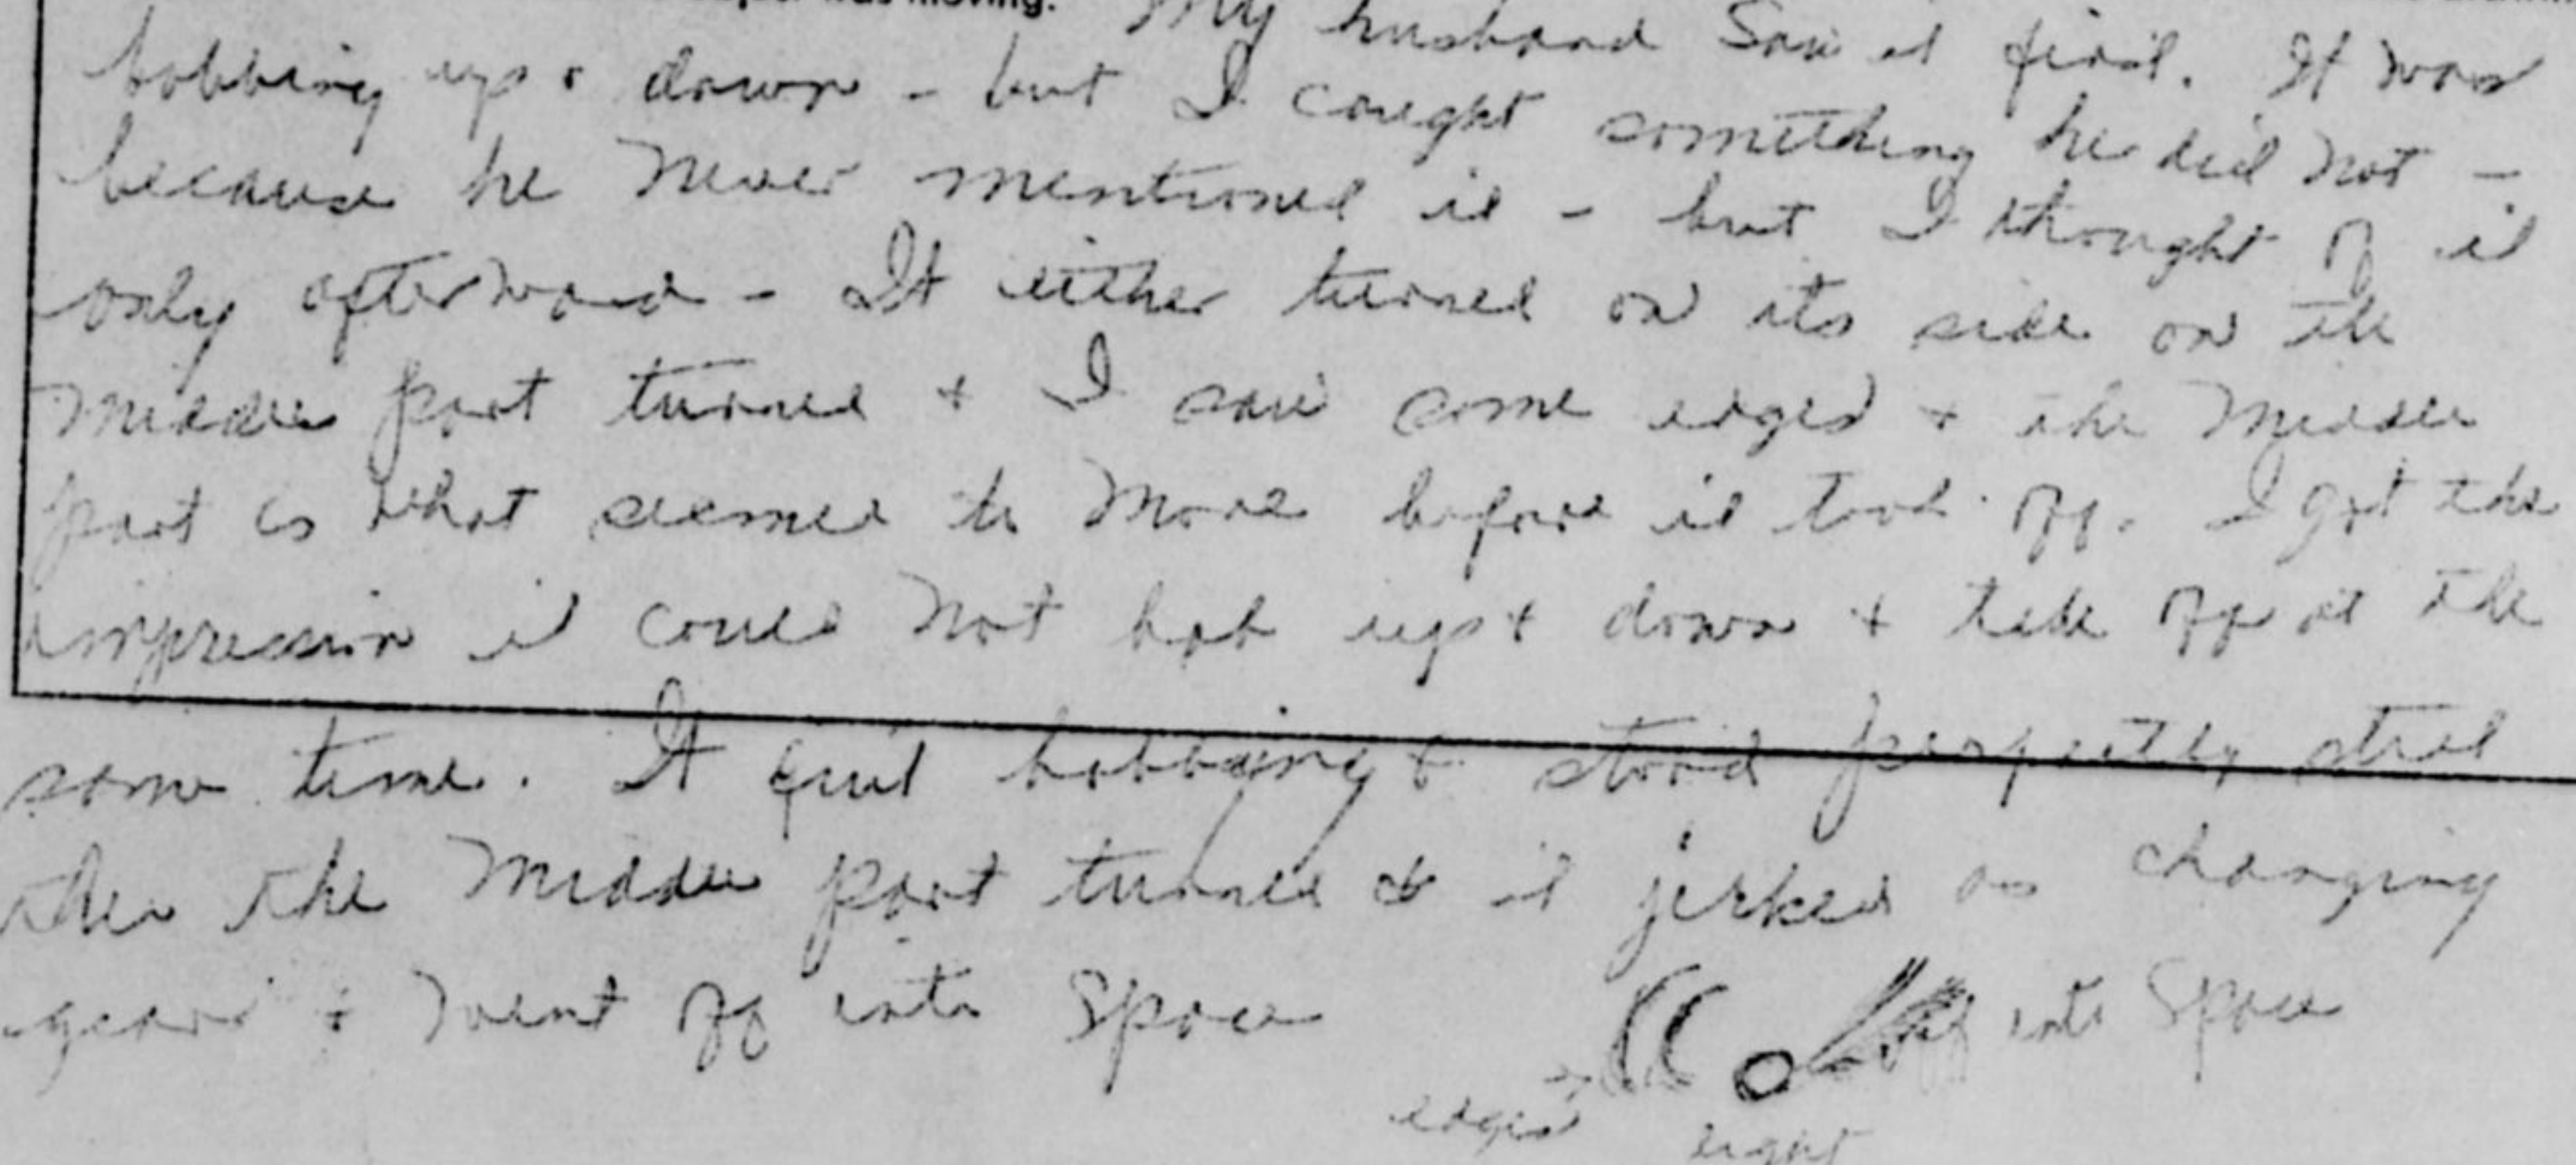 was moving. My husband saw it first. It was
bobbing up & down - but I caught something he did not -
because he never mentioned it - but I thought of it
only afterward - It either turned on its side or the
middle part turned + I saw some edges + the middle
part is what seemed to move before it took off. I got the
impression it could not bob up + down + take off at the
same time. It quit bobbing & stood perfectly still
then the middle part turned & it jerked as changing
gears + went off into space
into space
edges
light